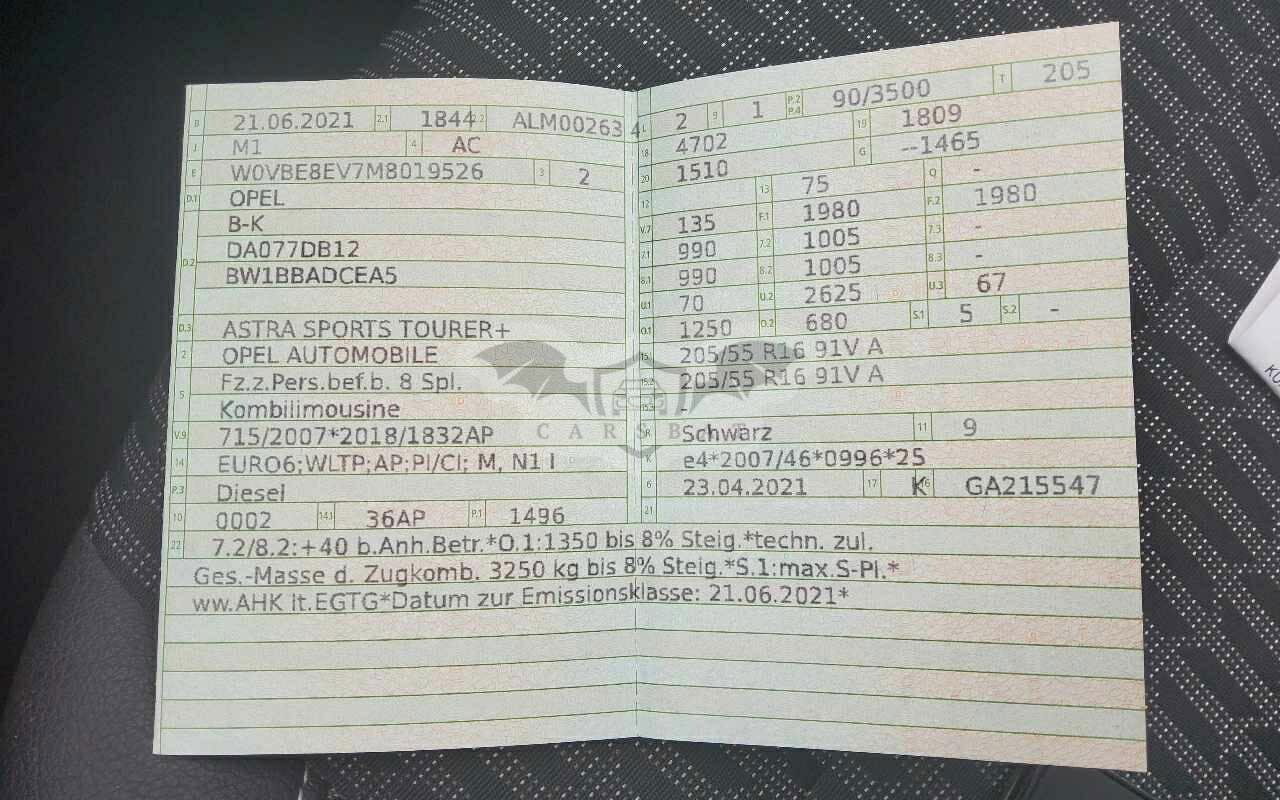 B 21.06.2021 2.1 1844 2.2 ALM00263 4
J M1 4 AC
E W0VBE8EV7M8019526 3 2
D.1 OPEL
B-K
D.2 DA077DB12
BW1BBADCEA5
D.3 ASTRA SPORTS TOURER+
2 OPEL AUTOMOBILE
5 Fz.z.Pers.bef.b. 8 Spl.
Kombilimousine
V.9 715/2007*2018/1832AP
14 EURO6;WLTP;AP;PI/CI; M, N1 I
P.3 Diesel
10 0002 14.1 36AP P.1 1496
L 2 9 1 P.2 P.4 90/3500 T 205
18 4702 19 1809
20 1510 G --1465
12 13 75 Q -
V.7 135 F.1 1980 F.2 1980
7.1 990 7.2 1005 7.3 -
8.1 990 8.2 1005 8.3 -
U.1 70 U.2 2625 U.3 67
O.1 1250 O.2 680 S.1 5 S.2 -
15.1 205/55 R16 91V A
15.2 205/55 R16 91V A
15.3 -
R Schwarz 11 9
K e4*2007/46*0996*25
6 23.04.2021 17 K 16 GA215547
21
22 7.2/8.2:+40 b.Anh.Betr.*O.1:1350 bis 8% Steig.*techn. zul.
Ges.-Masse d. Zugkomb. 3250 kg bis 8% Steig.*S.1:max.S-Pl.*
ww.AHK lt.EGTG*Datum zur Emissionsklasse: 21.06.2021*